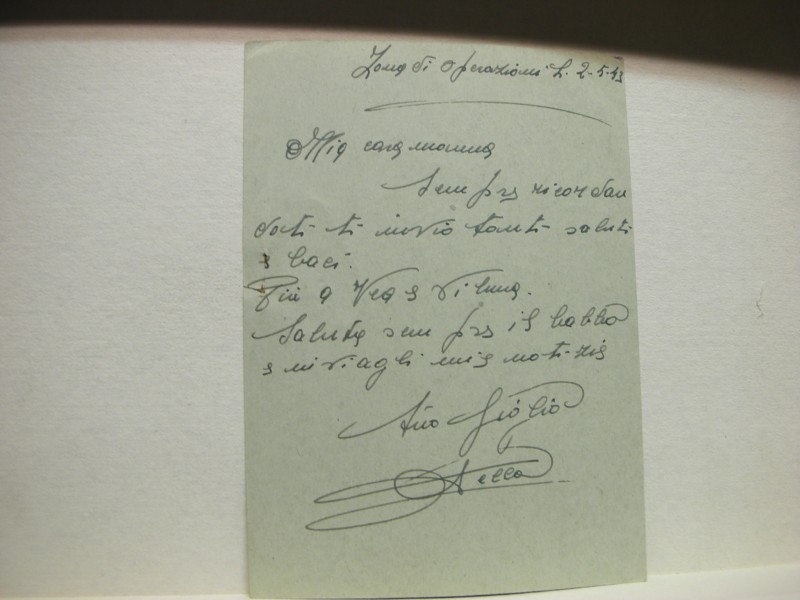 Zona di Operazioni li. 2-5-43
Mia cara mamma
Sempre ricordan
doti ti invio tanti saluti
e baci.
Più a Vea e Vilma.
Saluta sempre il babbo
e inviagli mie notizie
tuo figlio